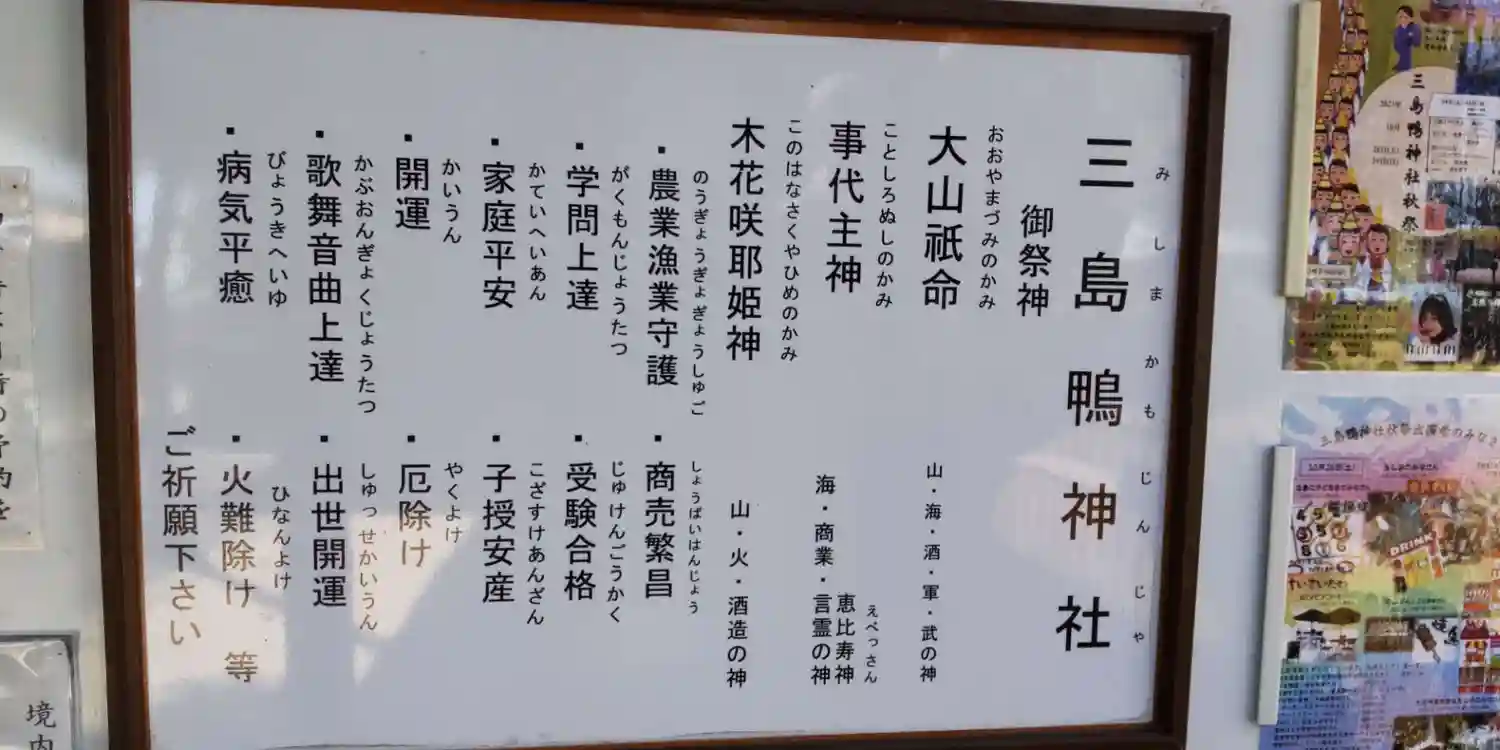 三島鴨神社
みしまかもじんじゃ
御祭神
大山祇命
おおやまづみのかみ
山・海・酒・軍・武の神
事代主神
ことしろぬしのかみ
海・商業・言霊の神
恵比寿神
えべっさん
木花咲耶姫神
このはなさくやひめのかみ
山・火・酒造の神
・農業漁業守護
のうぎょうぎょぎょうしゅご
・商売繁昌
しょうばいはんじょう
・学問上達
がくもんじょうたつ
・受験合格
じゅけんごうかく
・家庭平安
かていへいあん
・子授安産
こざすけあんざん
・開運
かいうん
・厄除け
やくよけ
・歌舞音曲上達
かぶおんぎょくじょうたつ
・出世開運
しゅっせかいうん
・病気平癒
びょうきへいゆ
・火難除け 等
ひなんよけ
ご祈願下さい
三島鴨神社秋祭
DRINK
境内